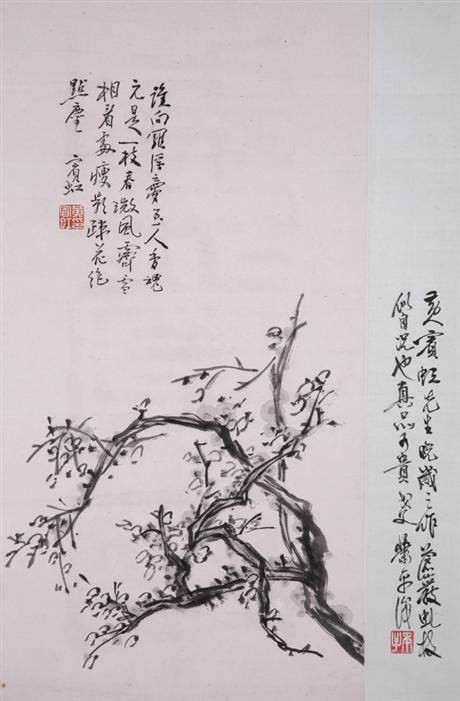 誰向羅浮夢玉人香魂
元是一枝春微風霽雪
相看處瘦影疎花絕
點塵 賓虹
黃賓虹先生晚歲之作蒼嚴虬枝
似自況也真品可貴